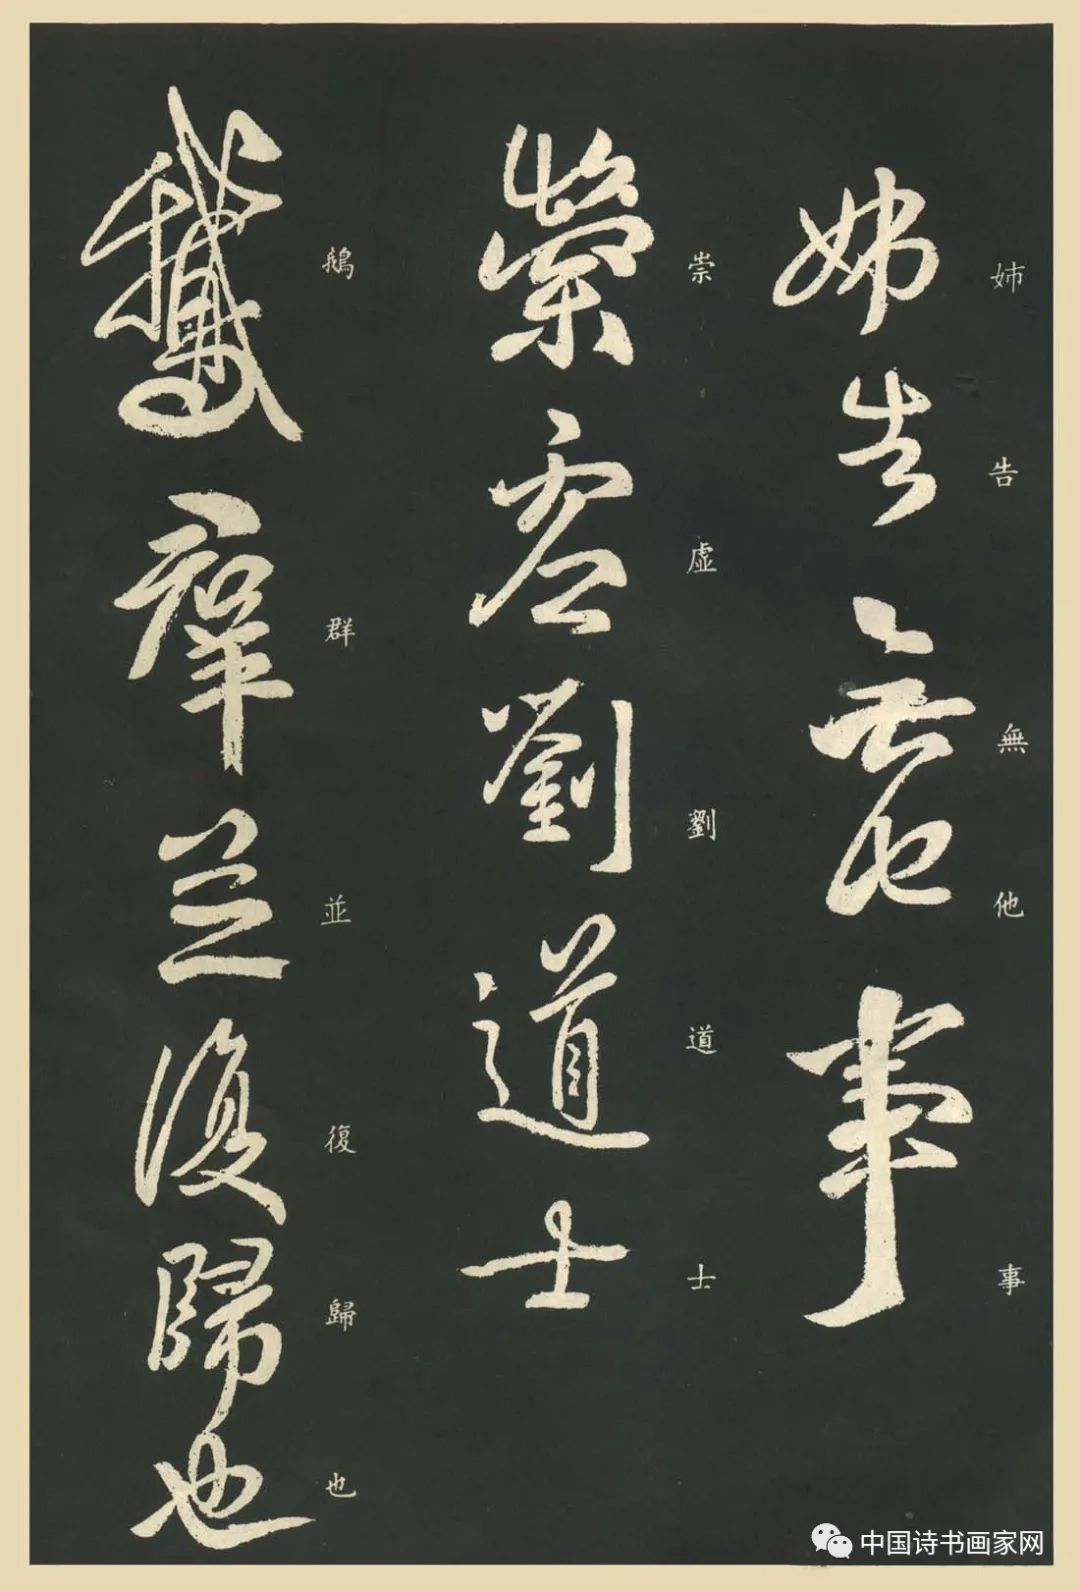 姊告無他事
姉告無他事
崇虛劉道士
崇虛劉道士
鵝群並復歸也
鵝群並復歸也
中国诗书画家网